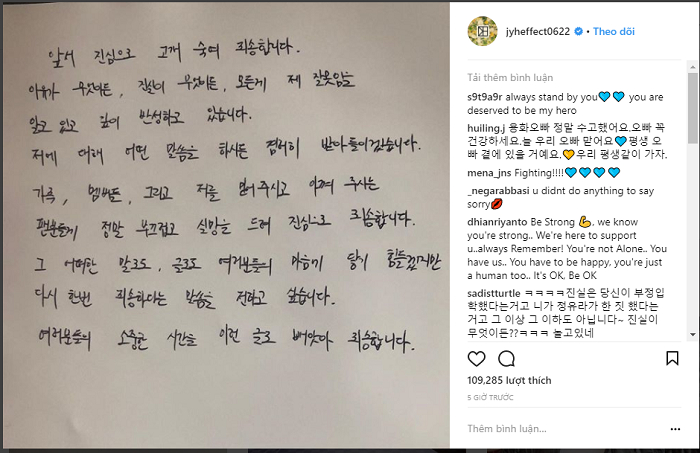 앞서 진심으로 고개 숙여 죄송합니다.
이유가 무엇이든, 진실이 무엇이든, 모든게 제 잘못임을
알고 있고 깊이 반성하고 있습니다.
저에 대해 어떤 말씀을 하시든 겸허히 받아들이겠습니다.
가족, 멤버들, 그리고 저를 믿어주시고 아껴 주시는
팬분들께 정말 부끄럽고 실망을 드려 진심으로 죄송합니다.
그 어떠한 말로도, 글로도 여러분들의 마음에 닿기 힘들겠지만
다시 한번 죄송하다는 말씀을 전하고 싶습니다.
여러분들의 소중한 시간을 이런 글로 빼앗아 죄송합니다.
jyheffect0622 • Theo dõi
Tải thêm bình luận
s9t9a9r always stand by you💙💙 you are
deserved to be my hero
huiling.j 용화오빠 정말 수고했어요.오빠 꼭
건강하세요.늘 우리 오빠 맏어요💙평생 오
빠 곁에 있을 거예요.💛우리 평생같이 가자.
mena_jns Fighting!!!!💙💙💙💙
_negarabbasi u didnt do anything to say
sorry💋
dhianriyanto Be Strong 💪, we know
you're strong.. We're here to support
u..always Remember! You're not Alone.. You
have us.. You have to be happy, you're just
a human too.. It's OK, Be OK
sadistturtle ㅋㅋㅋㅋ진실은 당신이 부정입
학했다는거고 니가 정유라가 한 짓 했다는
거고 그 이상 그 이하도 아닙니다~ 진실이
무엇이든??ㅋㅋㅋ 놀고있네
109,285 lượt thích
5 GIỜ TRƯỚC
Thêm bình luận...